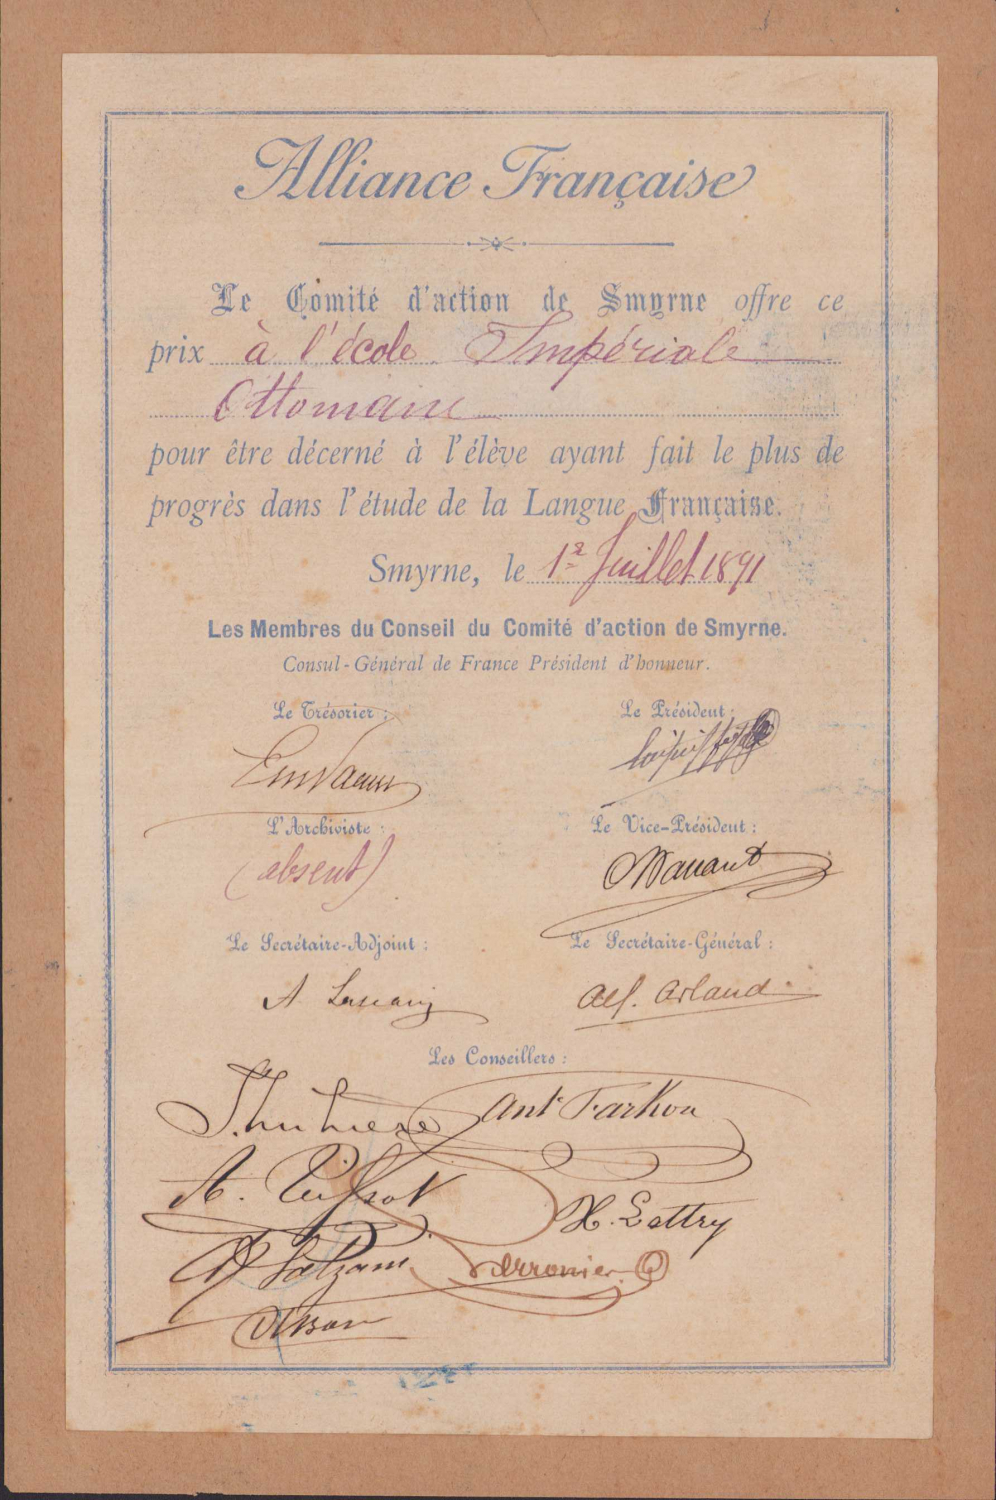 Alliance Française
Le Comité d'action de Smyrne offre ce
prix à l'école Impériale
Ottomane
pour être décerné à l'élève ayant fait le plus de
progrès dans l'étude de la Langue Française.
Smyrne, le 1er Juillet 1891
Les Membres du Conseil du Comité d'action de Smyrne.
Consul-Général de France Président d'honneur.
Le Trésorier : Le Président :
L'Archiviste : Le Vice-Président :
(absent)
Le Secrétaire-Adjoint : Le Secrétaire-Général :
A Alf. Arlaud
Les Conseillers :
Ant Farkoa
A.